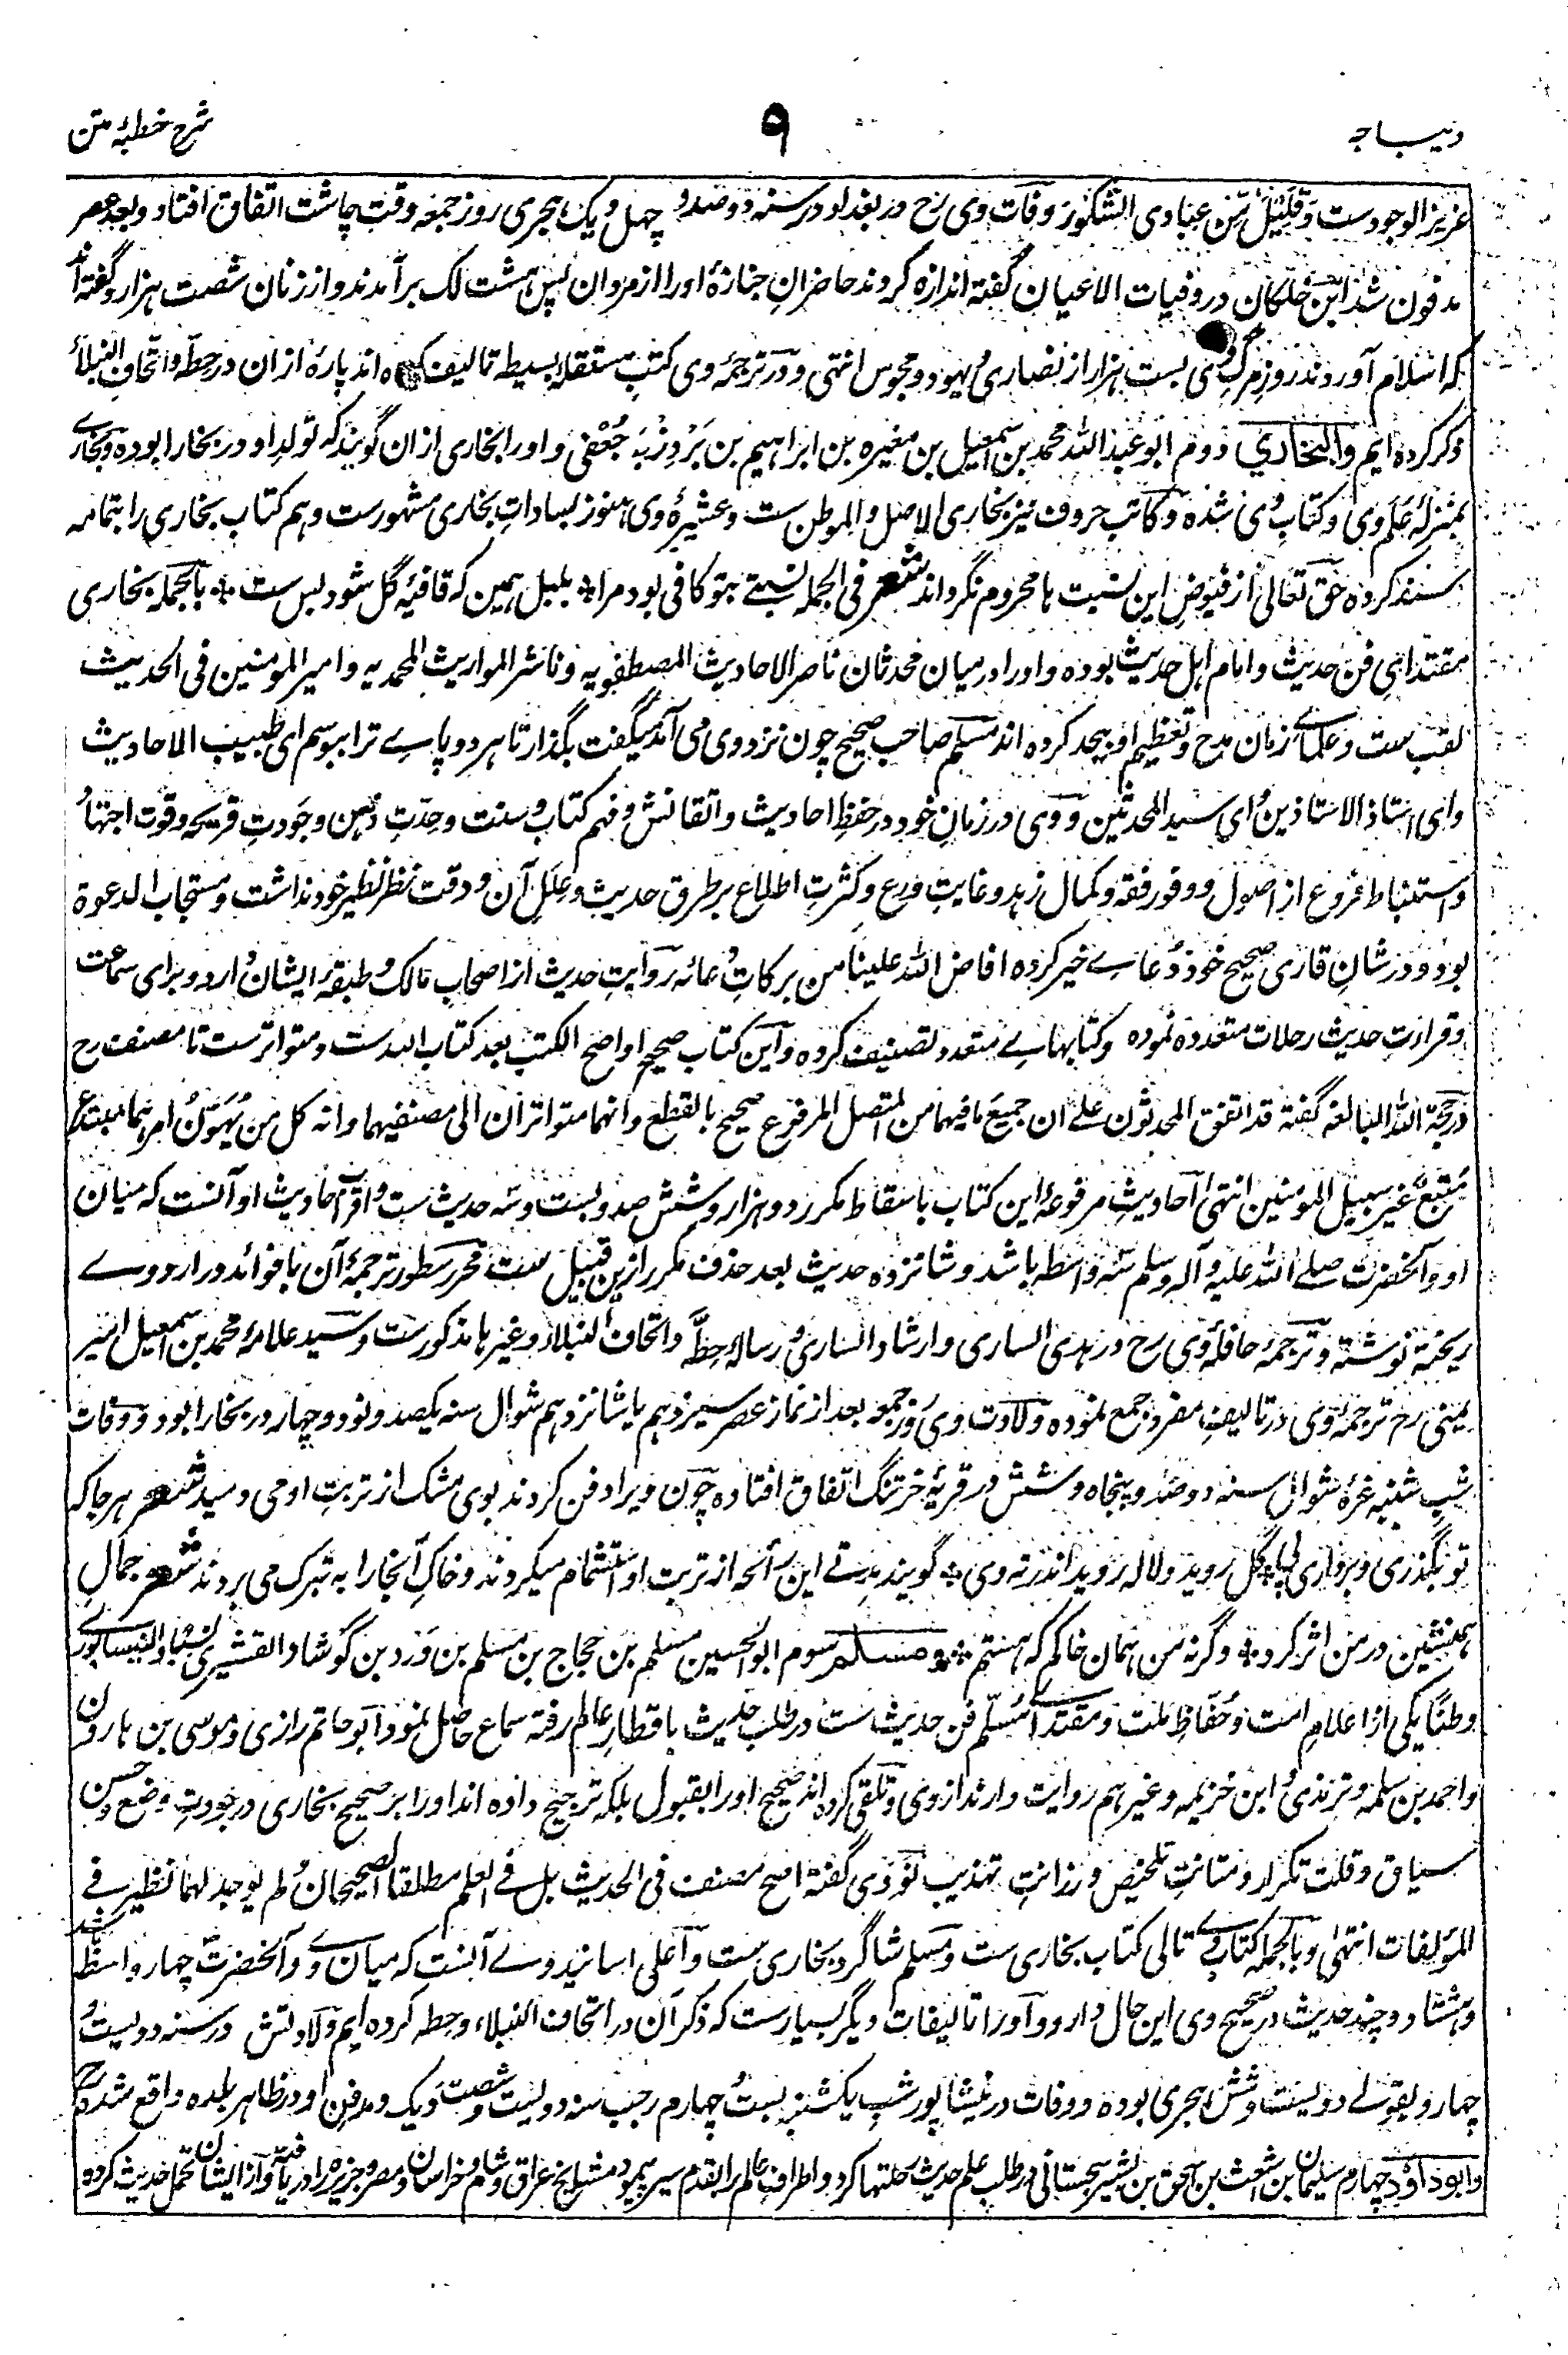 دیباجه
۹
شرح خطبهٔ متن
عزیز الوجودست وَقَلِیْلٌ مِّن عِبَادِی الشَّکُورُ وفات وی رح در بغداد در سنه دوصد و چهل و یک هجری روز جمعه وقت چاشت اتفاق افتاد و بعد عصر
مدفون شد ابن خلکان در وفیات الاعیان گفته اندازه کردند حاضران جنازهٔ او را از مردان پس هشت لک برآمدند و از زنان شصت هزار و گفته اند
که اسلام آوردند روز مرگ وی بست هزار از نصاری و یهود و مجوس انتهی و در ترجمهٔ وی کتب مستقله بسیطه تالیف کرده اند پارهٔ ازان در حطه و اتحاف النبلاء
ذکر کرده ایم والبخاري دوم ابو عبد الله محمد بن اسمعیل بن مغیره بن ابراهیم بن بَرْدِزْبَه جُعْفی و او را بخاری ازان گویند که تولد او در بخارا بوده و بخاری
بمنزلهٔ عَلَم وی و کتاب وی شده و کاتب حروف نیز بخاری الاصل والموطن ست و عشیرهٔ وی هنوز بسادات بخاری مشهورست و هم کتاب بخاری را بتمامه
سند کرده حق تعالی از فیوض این نسبت ها محروم نگرداند شعر فی الجمله نسبتے بتو کافی بود مرا ٭ بلبل همین که قافیهٔ گل شود بس ست ٭ بالجمله بخاری
مقتدای فن حدیث و امام اهل حدیث بوده و او را در میان محدثان ناصر الاحادیث المصطفویه و ناشر المواریث المحمدیه و امیر المومنین فی الحدیث
لقب ست و علماے زمان مدح و تعظیم او بیحد کرده اند مسلم صاحب صحیح چون نزد وی می آمد میگفت بگذار تا هر دو پاے ترا ببوسم ای طبیب الاحادیث
وای استاذ الاستاذین و ای سید المحدثین و وی در زمان خود در حفظ احادیث و اتقانش و فهم کتاب و سنت و حدّتِ ذهن و جَودتِ قریحه و قوت اجتهاد
و استنباط فروع از اصول و وفور فقه و کمال زهد و غایت ورع و کثرتِ اطلاع بر طرق حدیث و علل آن و دقت نظر نظیر خود نداشت و مستجاب الدعوة
بود و در شان قاری صحیح خود دعاے خیر کرده افاض الله علینا من برکاتِ دعائه روایتِ حدیث از اصحاب مالک و طبقهٔ ایشان دارد و برای سماعت
و قراءتِ حدیث رحلات متعدده نموده و کتابهاے متعدد تصنیف کرده و این کتاب صحیح او اصح الکتب بعد کتاب الله ست و متواترست تا مصنف رح
در حجة الله البالغه گفته قد اتفق المحدثون علے ان جمیعَ ما فیهما من المتصل المرفوع صحیح بالقطع وانهما متواتران الی مصنفیهما وانه کل من یُهَوِّنُ امرهما فمبتدع
مُتّبعٌ غیر سبیل المؤمنین انتهی احادیث مرفوعهٔ این کتاب باسقاط مکرر دو هزار و شش صد و بست و سه حدیث ست و اقرب احادیث او آنست که میان
او و آنحضرت صلے الله علیه وآله وسلم سه واسطه باشد و شانزده حدیث بعد حذف مکرر ازین قبیل ست محرر سطور ترجمهٔ آن با فوائد در اردوے
ریخته نوشته و ترجمهٔ حافلهٔ وی رح در هدی الساری و ارشاد الساری و رسالهٔ حِطّه و اتحاف النبلاء و غیرها مذکورست و سید علامه محمد بن اسمعیل امیر
یمنی رح ترجمهٔ وی در تالیف مفرد جمع نموده ولادت وی روز جمعه بعد از نماز عصر سیزدهم یا شانزدهم شوال سنه یکصد و نود و چهار در بخارا بود و وفات
شب شنبه غرهٔ شوال سنه دوصد و پنجاه و شش در قریهٔ خرتنگ اتفاق افتاده چون ویرا دفن کردند بوی مشک از تربتِ او می دمید شعر هر جا که
تو بگذری و برداری پا ٭ گل روید و لاله روید اندر ته وی ٭ گویند مدتے این رائحه از تربت او استشمام میکردند و خاکِ آنجا را به تبرک می بردند شعر جمال
همنشین در من اثر کرد ٭ وگرنه من همان خاکم که هستم ٭ و مسلم سوم ابو الحسین مسلم بن حجاج بن مسلم بن وَرد بن کوشاد القشیری نسبًا والنیساپوری
وطنًا یکی از اعلام امت و حُفّاظ ملت و مقتداے مُسلّم فن حدیث ست در طلب حدیث باقطار عالم رفته سماع حاصل نمود ابو حاتم رازی و موسی بن هارون
و احمد بن سلمه و ترمذی و ابن خزیمه و غیرهم روایت دارند از وی و تلقی کرده اند صحیح او را بقبول بلکه ترجیح داده اند او را بر صحیح بخاری در جودتِ وضع و حسن
سیاق و قلت تکرار و متانتِ تلخیص و رزانتِ تهذیب نووی گفته اصح مصنف فی الحدیث بل فے العلم مطلقا الصحیحان ولم یوجد لهما نظیر فے
المؤلفات انتهی و بالجمله کتاب وے تالی کتاب بخاری ست و مسلم شاگرد بخاری ست و اعلی اسانید وے آنست که میان وے و آنحضرت چهار واسطه باشد
و هشتاد و چند حدیث در صحیح وی این حال دارد و او را تالیفات دیگر بسیارست که ذکر آن در اتحاف النبلاء و حطه کرده ایم ولادتش در سنه دویست و
چهار و بقولے دویست و شش هجری بوده و وفات در نیشاپور شب یکشنبه بست و چهارم رجب سنه دویست و شصت و یک و مدفن او در ظاهر بلده واقع شده رح
وابو داؤد چهارم سلیمان بن اشعث بن اسحق بن بشیر سجستانی در طلب علم حدیث رحلتها کرد و اطراف عالم را بقدم سیر پیمود مشایخ عراق و شام و خراسان و مصر و جزیره را دریافته و از ایشان تحمل حدیث کرده